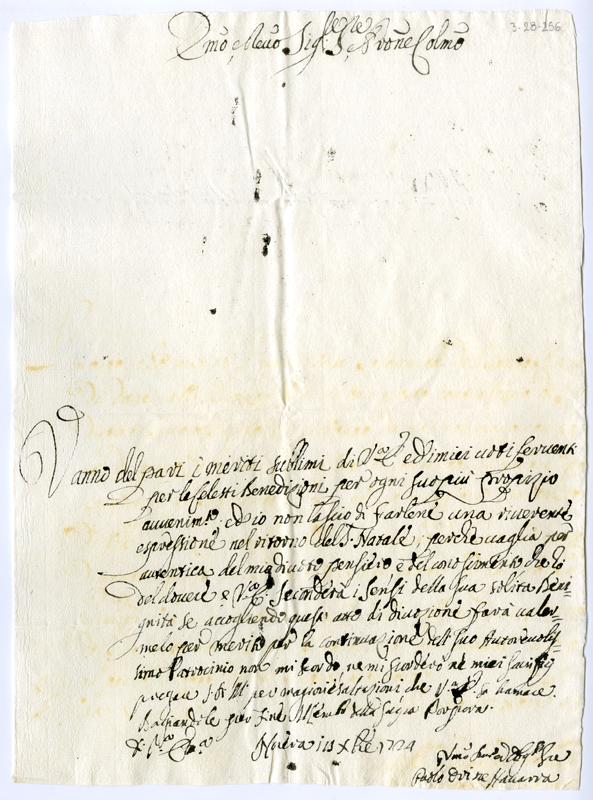 3-28-256
Emo e Revo Sig.re Sig.re e Prone Colmo
Vanno del pari i meriti sublimi di V.a E. ed i miei voti ferventi
per le Celesti Benedizioni per ogni suo più propizio
avvenim.to: ed io non lascio di farlene una riverente
espressione nel ritorno del S. Natale, perche vaglia per
autentica del mio divoto pensiero e del conoscimento che hò
del dovere e V.a E. seconderà i sensi della sua solita Beni=
gnità se accogliendo quest' atto di divozione farà valer=
melo per merito per la continuazione del suo Autorevolis=
simo Patrocinio non mi scordo ne mi scorderò ne miei sacrificij
pregare che V.a E. brama e
Baciandole per fine della Sagra Porpora.
D. V.a Em.a 1724
Paolo Navarra